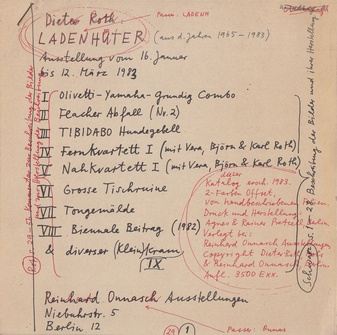 Passe: LADENH
Dieter Roth,
LADENHÜTER (aus d. Jahren 1965–1983)
Ausstellung vom 16. Januar
bis 12. März 1983
I Olivetti-Yamaha-Grundig Combo
II Flacher Abfall (Nr. 2)
III TIBIDABO Hundegebell
IV Fernkvartett I (mit Vera, Björn & Karl Roth)
V Nahkvartett I (mit Vera, Björn & Karl Roth)
VI Grosse Tischruine
VII Tongemälde
VIII Biennale Beitrag (1982)
& diverser (Klein)kram
IX
Katalog ersch. 1983.
2-Farben Offset,
von handbeschriebenen
Druck und Herstellung
Agnes & Rainer Pretzell, Berlin
Verlegt bei:
Reinhard Onnasch Ausstellungen
Copyright Dieter Roth
& Reinhard Onnasch
Aufl. 3500 Exx.
Reinhard Onnasch Ausstellungen
Niebuhrstr. 5
Berlin 12
29 1
Passe: